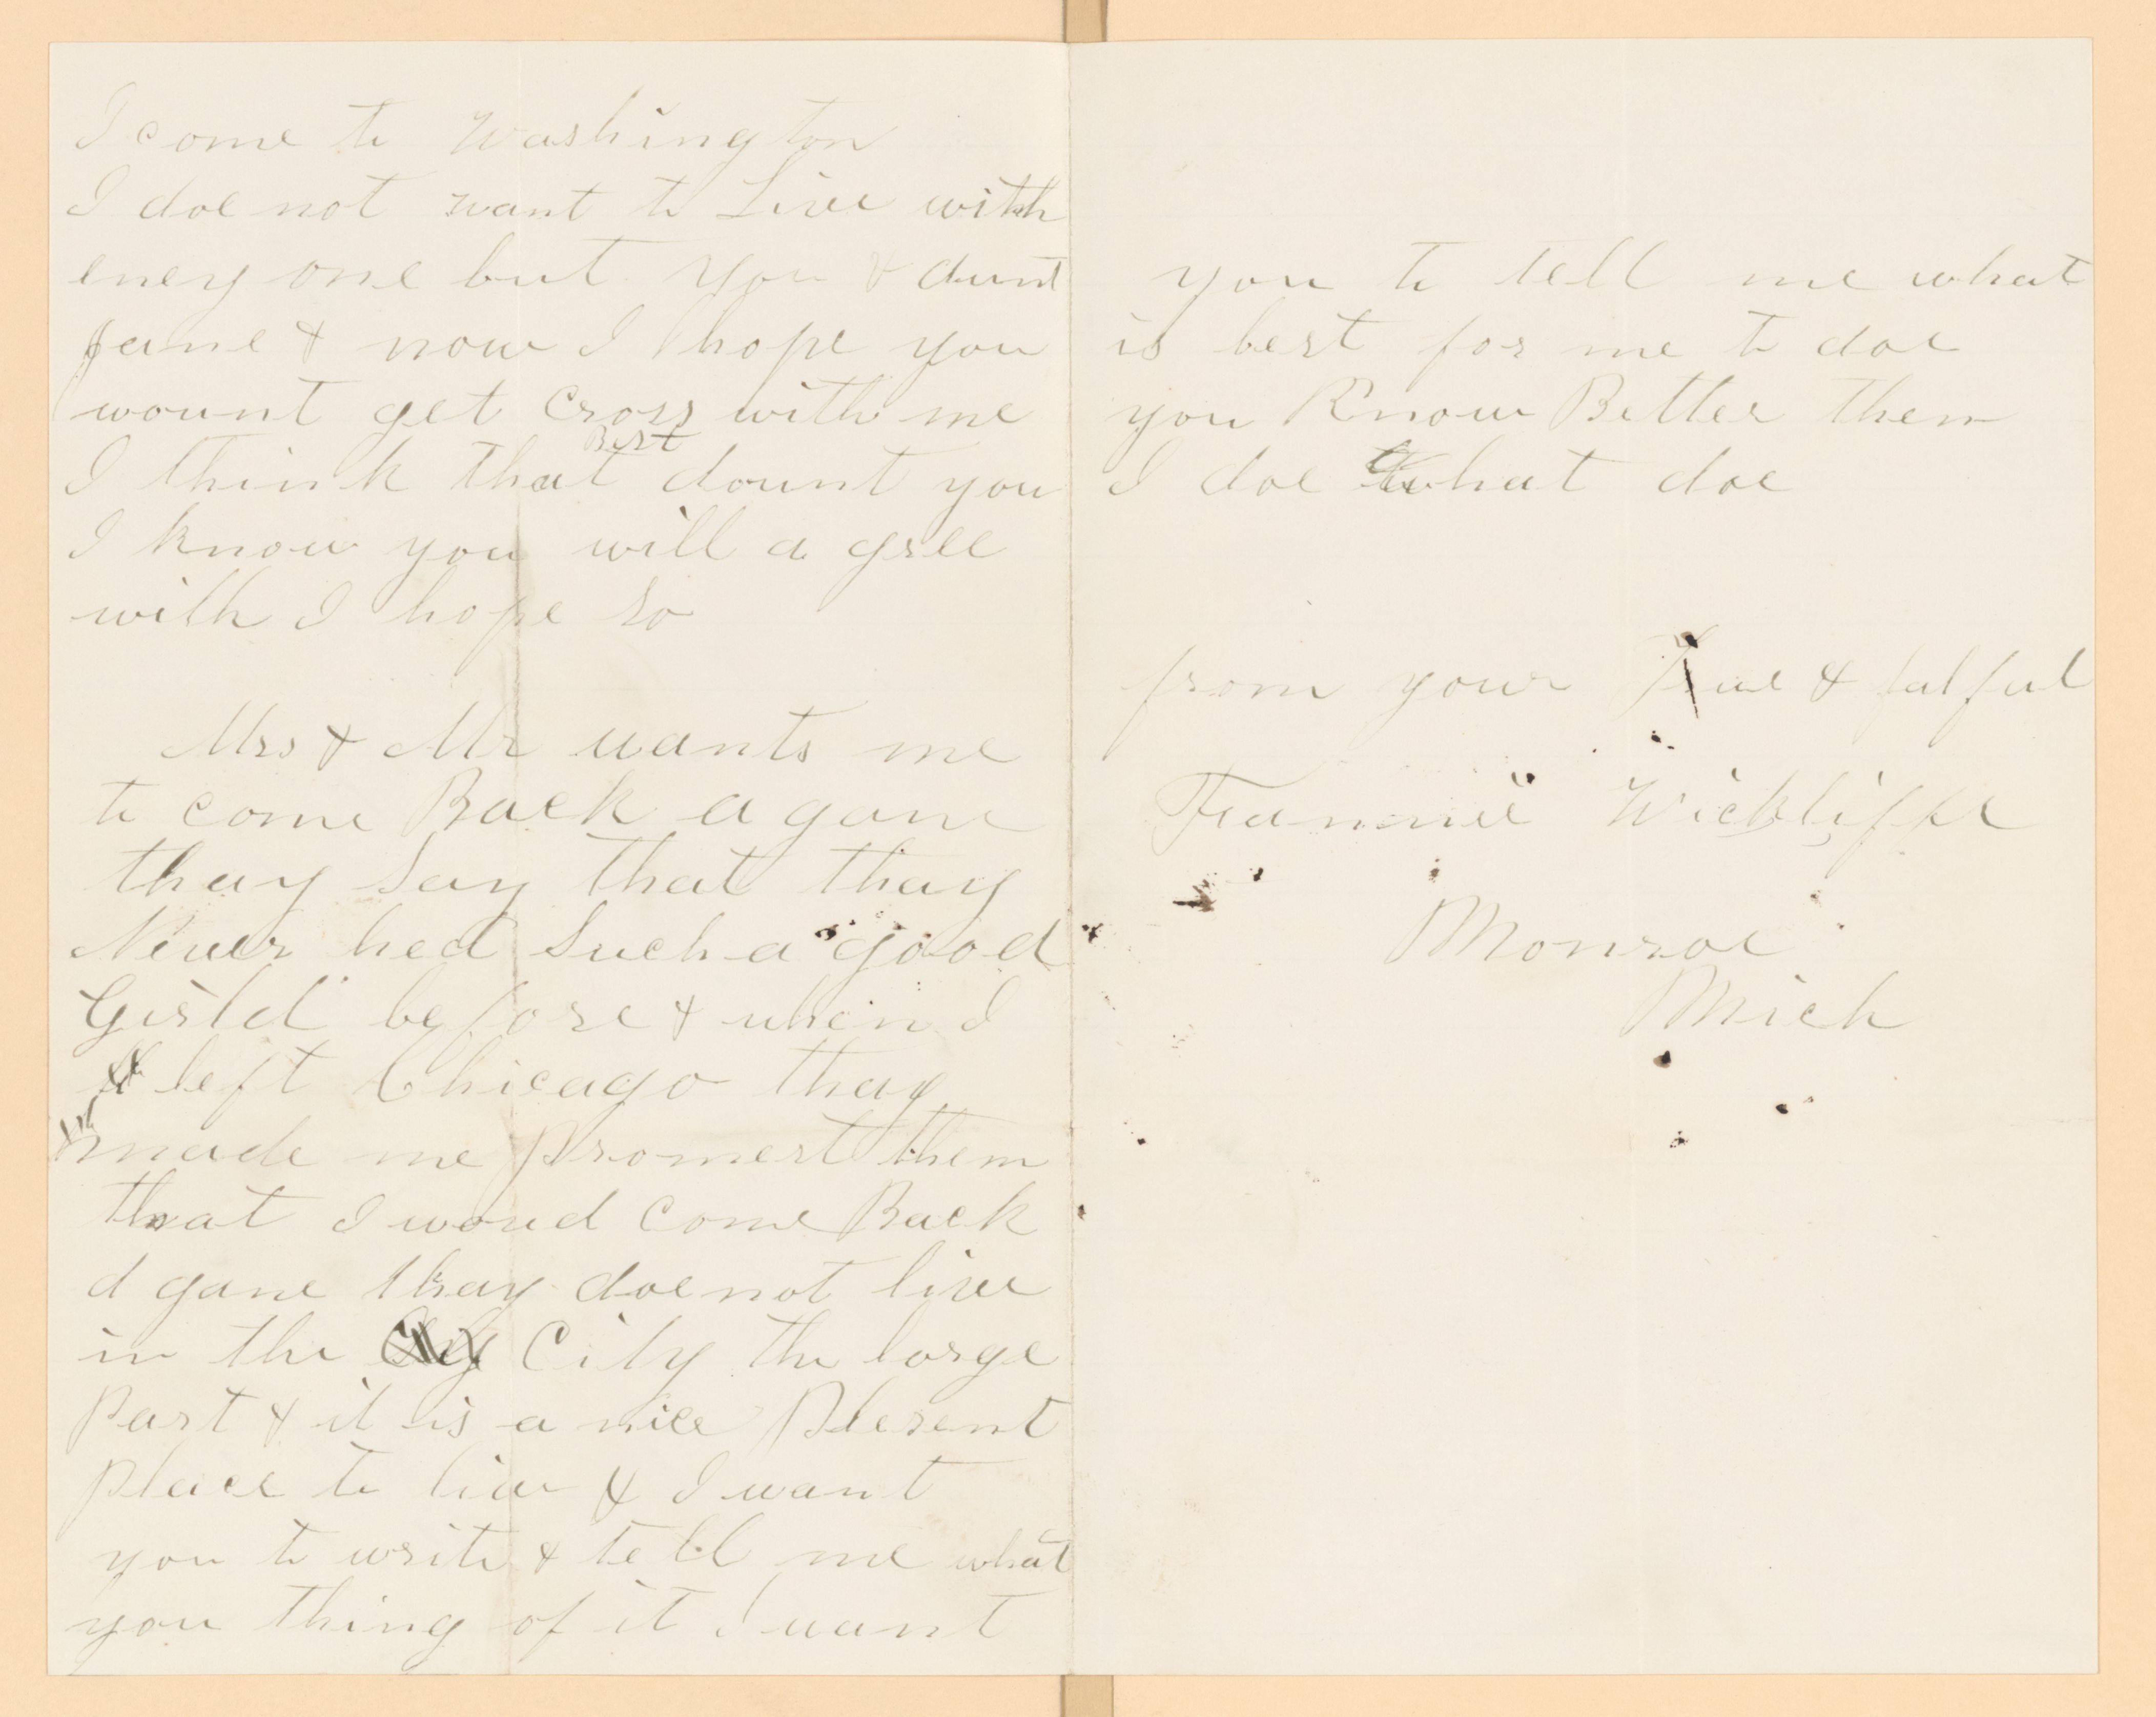 I come to Washington
I doe not want to Live with
eney one but you & aunt
Jane & now I hope you
wount get Cross with me
I think that Best dount you
I know you will a gree
with I hope so
Mrs & Mr wants me
to come Back a gane
thay Say that thay
Never hed Such a good
Girld before & when I
left Chicago thay
made me promest them
that I woud come Back
a gane thay doe not live
in the City the large
Part & it is a nice Plesent
place to live & I want
you to write & tell me what
you thing of it I want
you to tell me what
is best for me to doe
you Know Better then
I doe what doe
from your True & falful
Fannie Wickliffe
Monroe
Mich